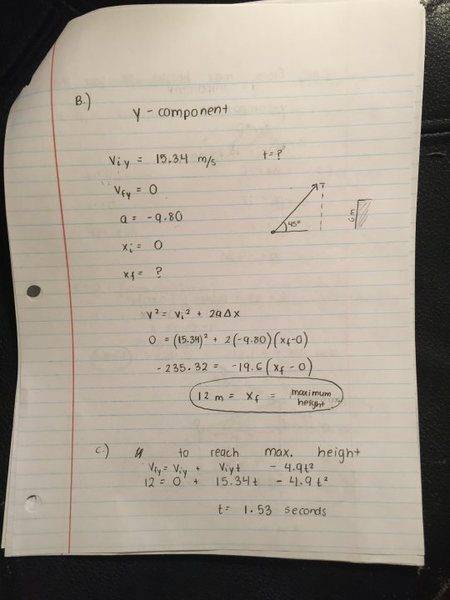 B.)
y - component
Viy = 15.34 m/s t = ?
Vfy = 0
a = -9.80
xi = 0
xf = ?
45°
6m
V² = Vi² + 2aΔx
0 = (15.34)² + 2(-9.80)(xf-0)
-235.32 = -19.6(xf - 0)
12 m = xf = maximum height
C.) to reach max. height
Vfy = Viy + Viyt - 4.9t²
12 = 0 + 15.34t - 4.9t²
t = 1.53 seconds